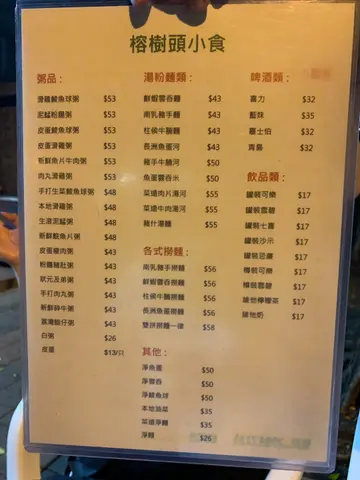 榕樹頭小食
粥品：
滑雞鯪魚球粥 $53
泥鯭粉腸粥 $53
皮蛋鯪魚球粥 $53
皮蛋滑雞粥 $53
新鮮魚片牛肉粥 $53
肉丸滑雞粥 $53
手打生菜鯪魚球粥 $48
本地滑雞粥 $48
生滾泥鯭粥 $48
新鮮鯇魚片粥 $48
皮蛋瘦肉粥 $43
粉腸豬肚粥 $43
狀元及弟粥 $43
手打肉丸粥 $43
新鮮碎牛粥 $43
荔灣艇仔粥 $43
白粥 $26
皮蛋 $13/只
湯粉麵類：
鮮蝦雲吞麵 $43
南乳豬手麵 $43
柱侯牛腩麵 $43
長洲魚蛋河 $43
豬手牛腩麵 $50
魚蛋雲吞米 $50
菜遠肉片湯河 $55
菜遠牛肉湯河 $55
豬什湯麵 $55
各式撈麵：
南乳豬手撈麵 $56
鮮蝦雲吞撈麵 $56
柱侯牛腩撈麵 $56
長洲魚蛋撈麵 $56
雙拼撈麵一律 $58
其他：
淨魚蛋 $50
淨雲吞 $50
淨鯪魚球 $50
本地油菜 $35
菜遠淨麵 $35
淨麵 $26
啤酒類：
喜力 $32
藍妹 $35
嘉士伯 $32
青島 $32
飲品類：
罐裝可樂 $17
罐裝雪碧 $17
罐裝七喜 $17
罐裝沙示 $17
罐裝忌廉 $17
樽裝可樂 $17
樽裝雪碧 $17
維他檸檬茶 $17
維他奶 $17